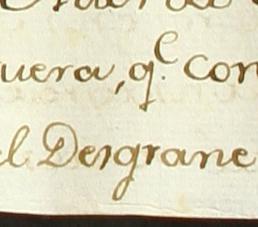 uera, q.^e con
el Desgrane